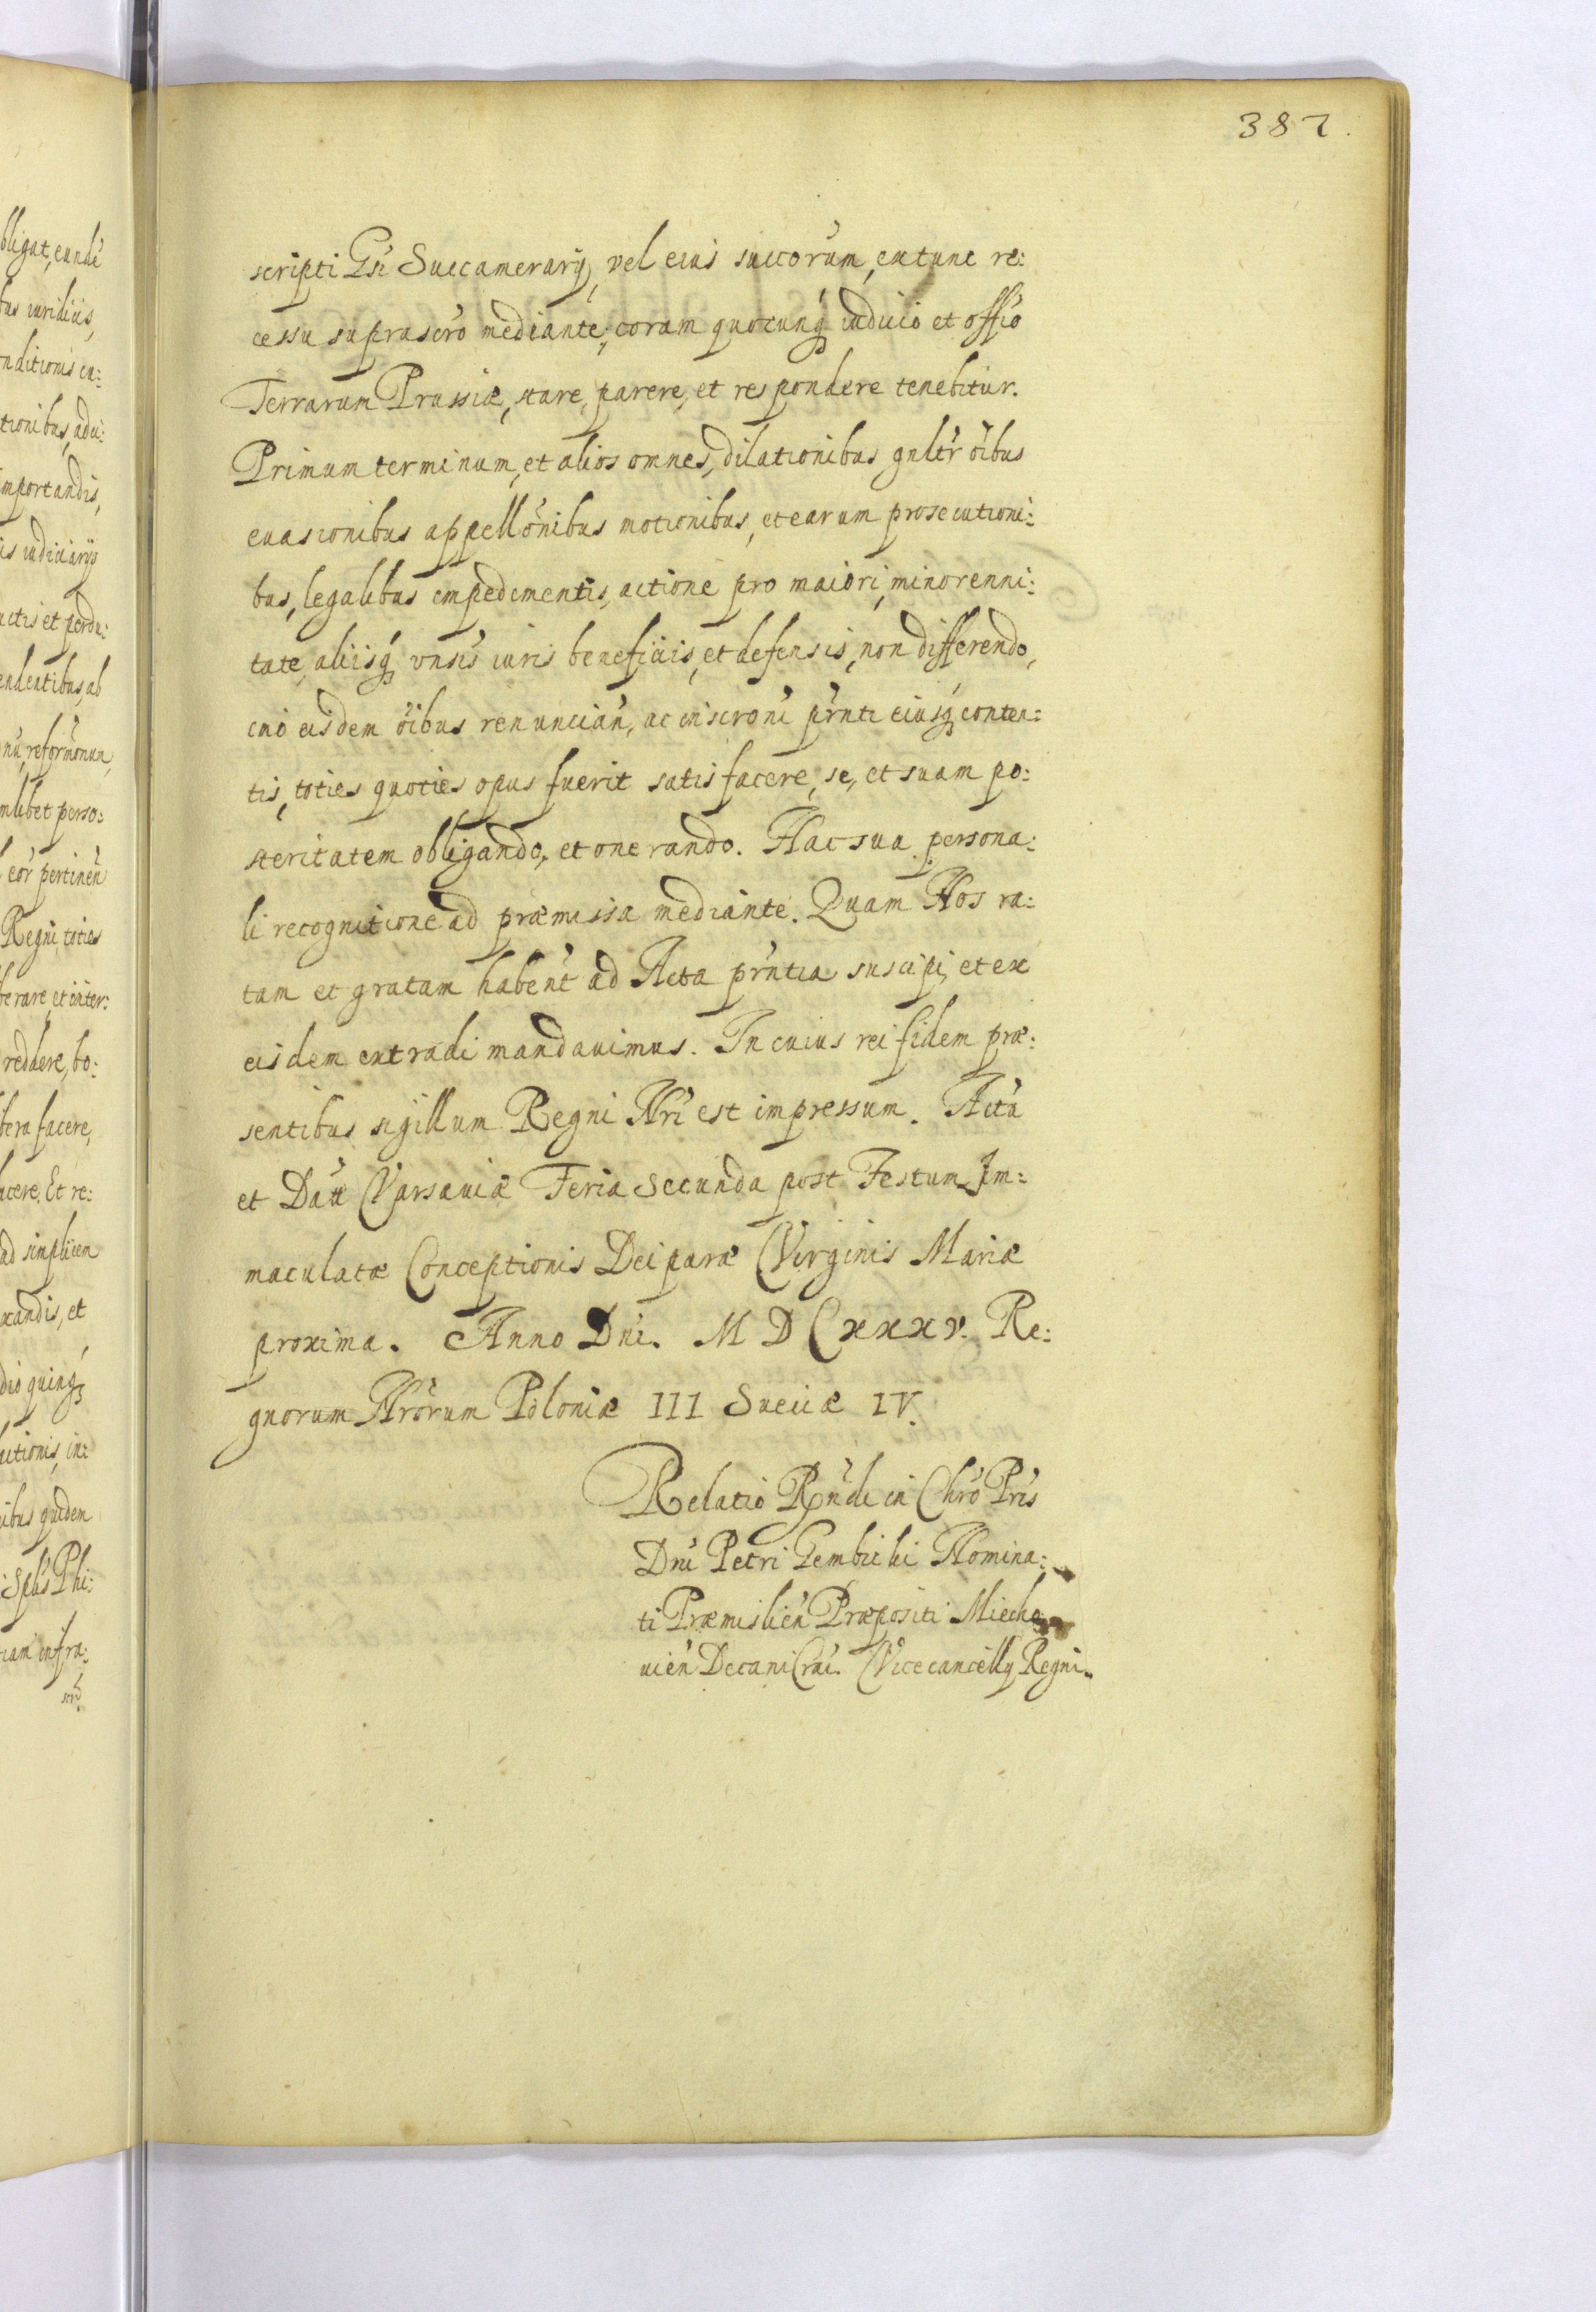 387.
scripti Gsi Succamerarÿ, vel eius succorum, extunc re:
cessu suprascro mediante, coram quocunq iudicio et offio
Terrarum Prussiæ, stare, parere, et respondere tenebitur.
Primum terminum, et alios omnes, dilationibus gnltr oibus
euasionibus appellonibus motionibus, et earum prosecutioni:
bus, legalibus impedimentis, actione pro maiori, minorenni:
tate, aliisq vnsis iuris beneficiis, et defensis, non differendo,
imo eisdem oibus renuncian, ac inscroni prnti eiusq conten:
tis, toties quoties opus fuerit satisfacere, se, et suam po:
steritatem obligando, et onerando. Hac sua persona:
li recognitione ad præmissa mediante. Quam Nos ra:
tam et gratam habent ad Acta prntia suscipi, et ex
eisdem extradi mandauimus. In cuius rei fidem præ:
sentibus sigillum Regni Nri est impressum. Actu
et Datt Varsauiæ Feria Secunda post Festum Im:
maculatæ Conceptionis Deiparæ Virginis Mariæ
proxima. Anno Dni. M D C xxx v. Re:
gnorum Nrorum Poloniæ III Sueciæ IV.
Relatio Rndi in Chro Pris
Dni Petri Gembicki Nomina:
ti Præmislien Præpositi Miecho
uien Decani Crac. Vicecancellÿ Regni.
bligat, eunde
bus iuridicis,
onditionis ex:
tionibus, adci:
mportandis,
is iudiciarÿs
actis et perdu:
endentibus, ab
nu, reformonum,
mlibet perso:
eor pertinen
Regni, toties
berare, et inter:
reddere, bo:
bera facere,
acere. Et re:
ad simplicem
xandis, et
dio quinq
itionis, in:
ibus quidem
Spbs Phi:
iam infra:
scrip